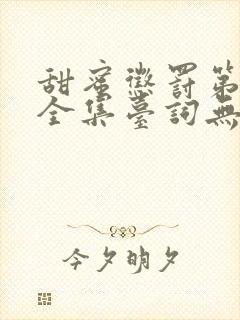 甜蜜懲罰第
全集臺詞無
今夕明夕